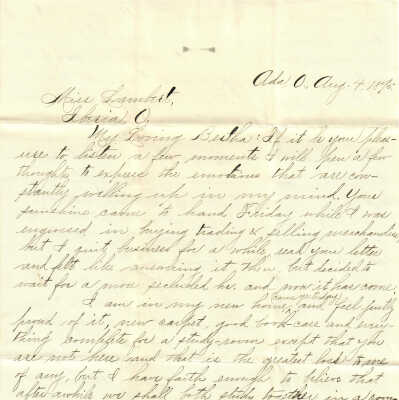 Ada O. Aug. 4. 18
Miss Lambert,
Iberia O.
My Loving Bertha: If it be your pleas-
ure to listen a few moments I will pen a few
thoughts to express the emotions that are con-
stantly welling up in my mind. Your
sunshine came to hand Friday while I was
engrossed in buying trading & selling merchandise
but I quit business for a while, read your letter
and felt like answering it then, but decided to
wait for a more secluded hr. and now it has come.
I am in my new home, and feel justly
proud of it, new carpet, good book-case and every-
thing complete for a study-room except that you
are not here and that is the greatest to me
of any, but I have faith enough to believe that
after awhile we shall both study together in a